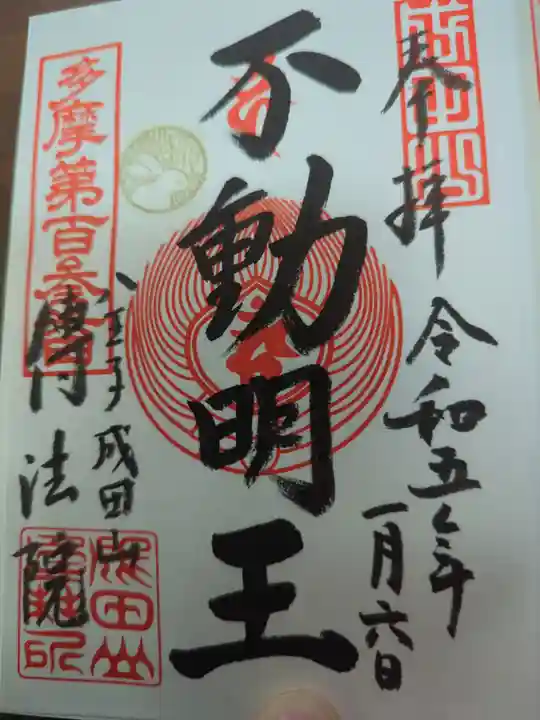 奉拝
令和五年
一月六日
不動明王
多摩第百番
八王子成田山
傳法院
成田山